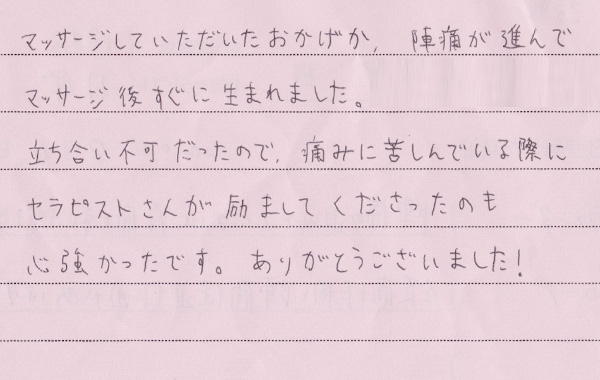 マッサージしていただいたおかげか、陣痛が進んで
マッサージ後すぐに生まれました。
立ち合い不可だったので、痛みに苦しんでいる際に
セラピストさんが励ましてくださったのも
心強かったです。ありがとうございました!